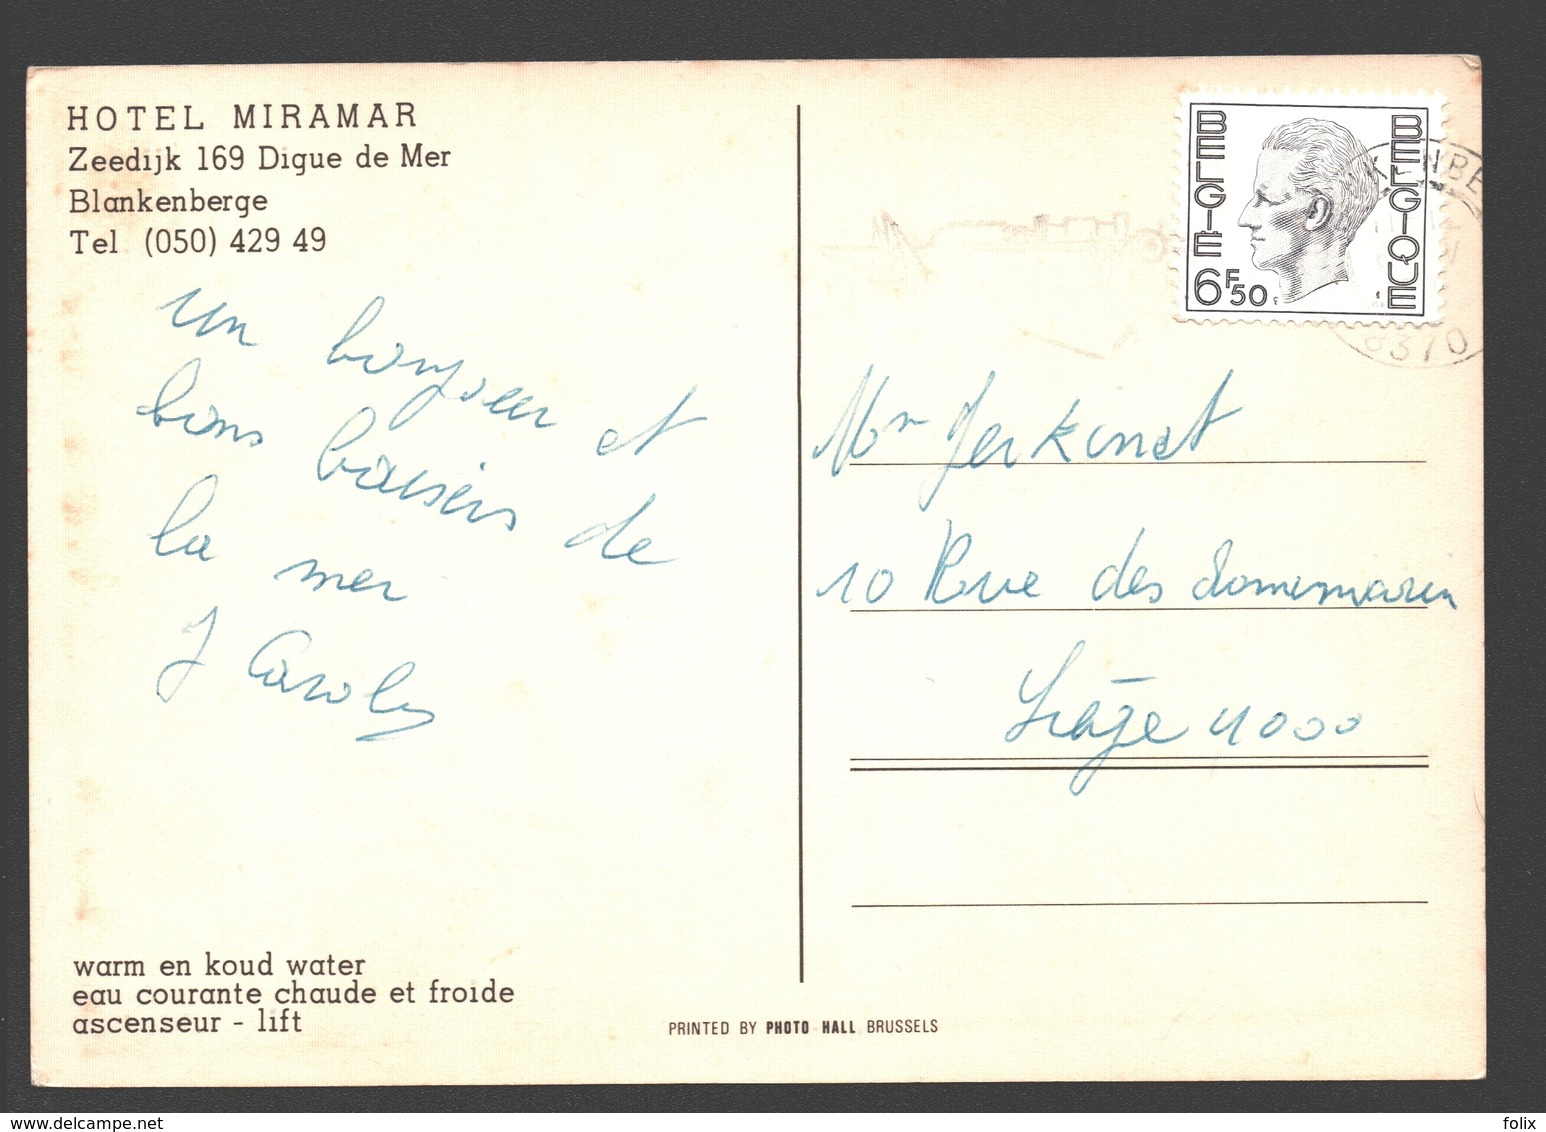 HOTEL MIRAMAR
Zeedijk 169 Digue de Mer
Blankenberge
Tel (050) 429 49
un bonjour et
bons baisers de
la mer
J Caroly
warm en koud water
eau courante chaude et froide
ascenseur - lift
PRINTED BY PHOTO HALL BRUSSELS
BELGIË
6F50
BELGIQUE
KENBE
8370
Mr Jerkinet
10 Rue des
Liège 4000
www.delcampe.net
folix